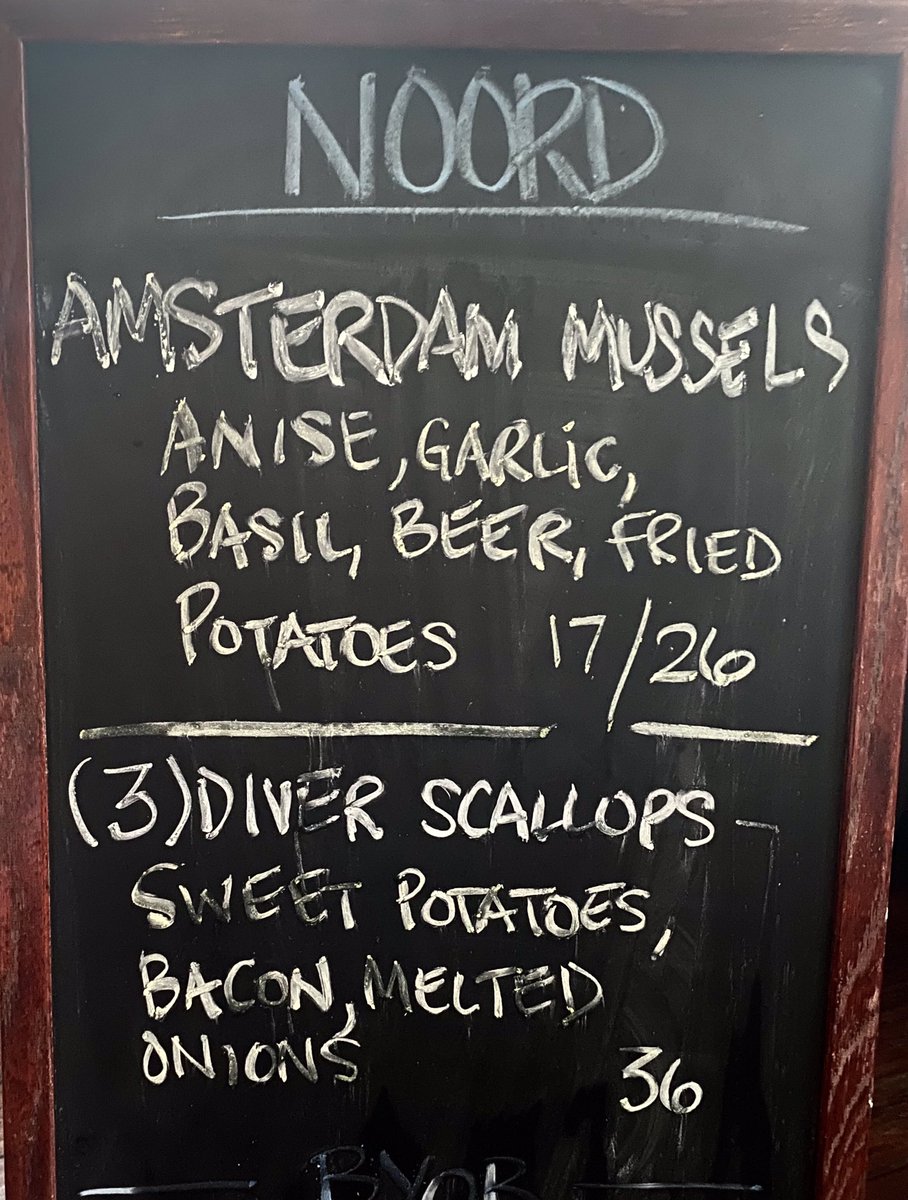 NOORD
AMSTERDAM MUSSELS
ANISE, GARLiC,
BASIL, BEER, FRIED
POTATOES 17/26
(3) DIVER SCALLOPS -
SWEET POTATOES,
BACON, MELTED
ONIONS 36
BYOB